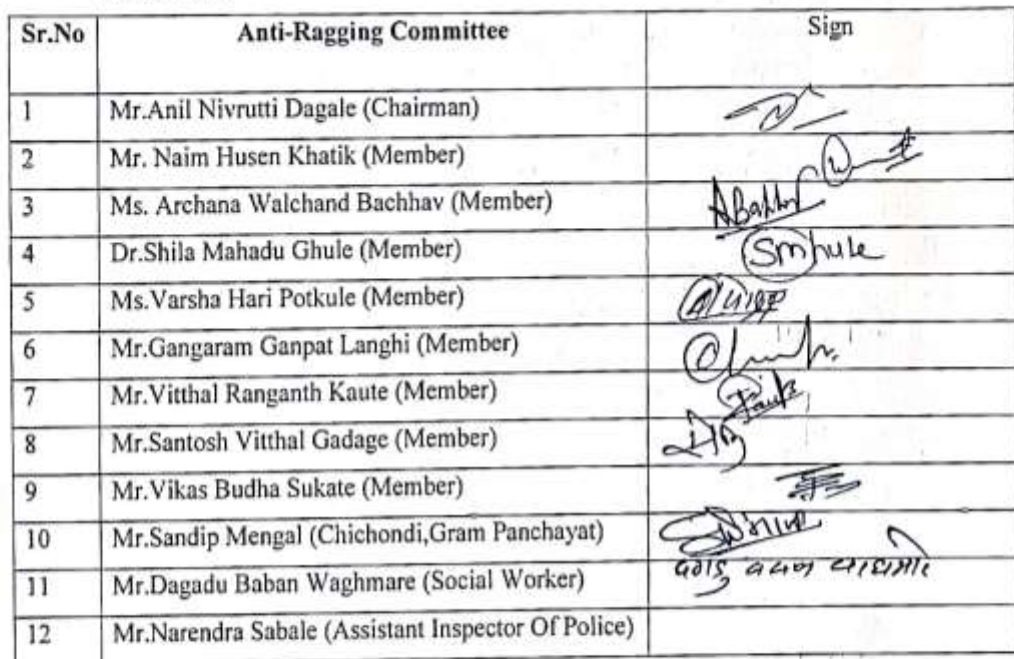 Sr.No Anti-Ragging Committee Sign
1 Mr.Anil Nivrutti Dagale (Chairman)
2 Mr. Naim Husen Khatik (Member)
3 Ms. Archana Walchand Bachhav (Member)
4 Dr.Shila Mahadu Ghule (Member) Smhule
5 Ms.Varsha Hari Potkule (Member)
6 Mr.Gangaram Ganpat Langhi (Member)
7 Mr.Vitthal Ranganth Kaute (Member)
8 Mr.Santosh Vitthal Gadage (Member)
9 Mr.Vikas Budha Sukate (Member)
10 Mr.Sandip Mengal (Chichondi,Gram Panchayat)
11 Mr.Dagadu Baban Waghmare (Social Worker)
12 Mr.Narendra Sabale (Assistant Inspector Of Police)